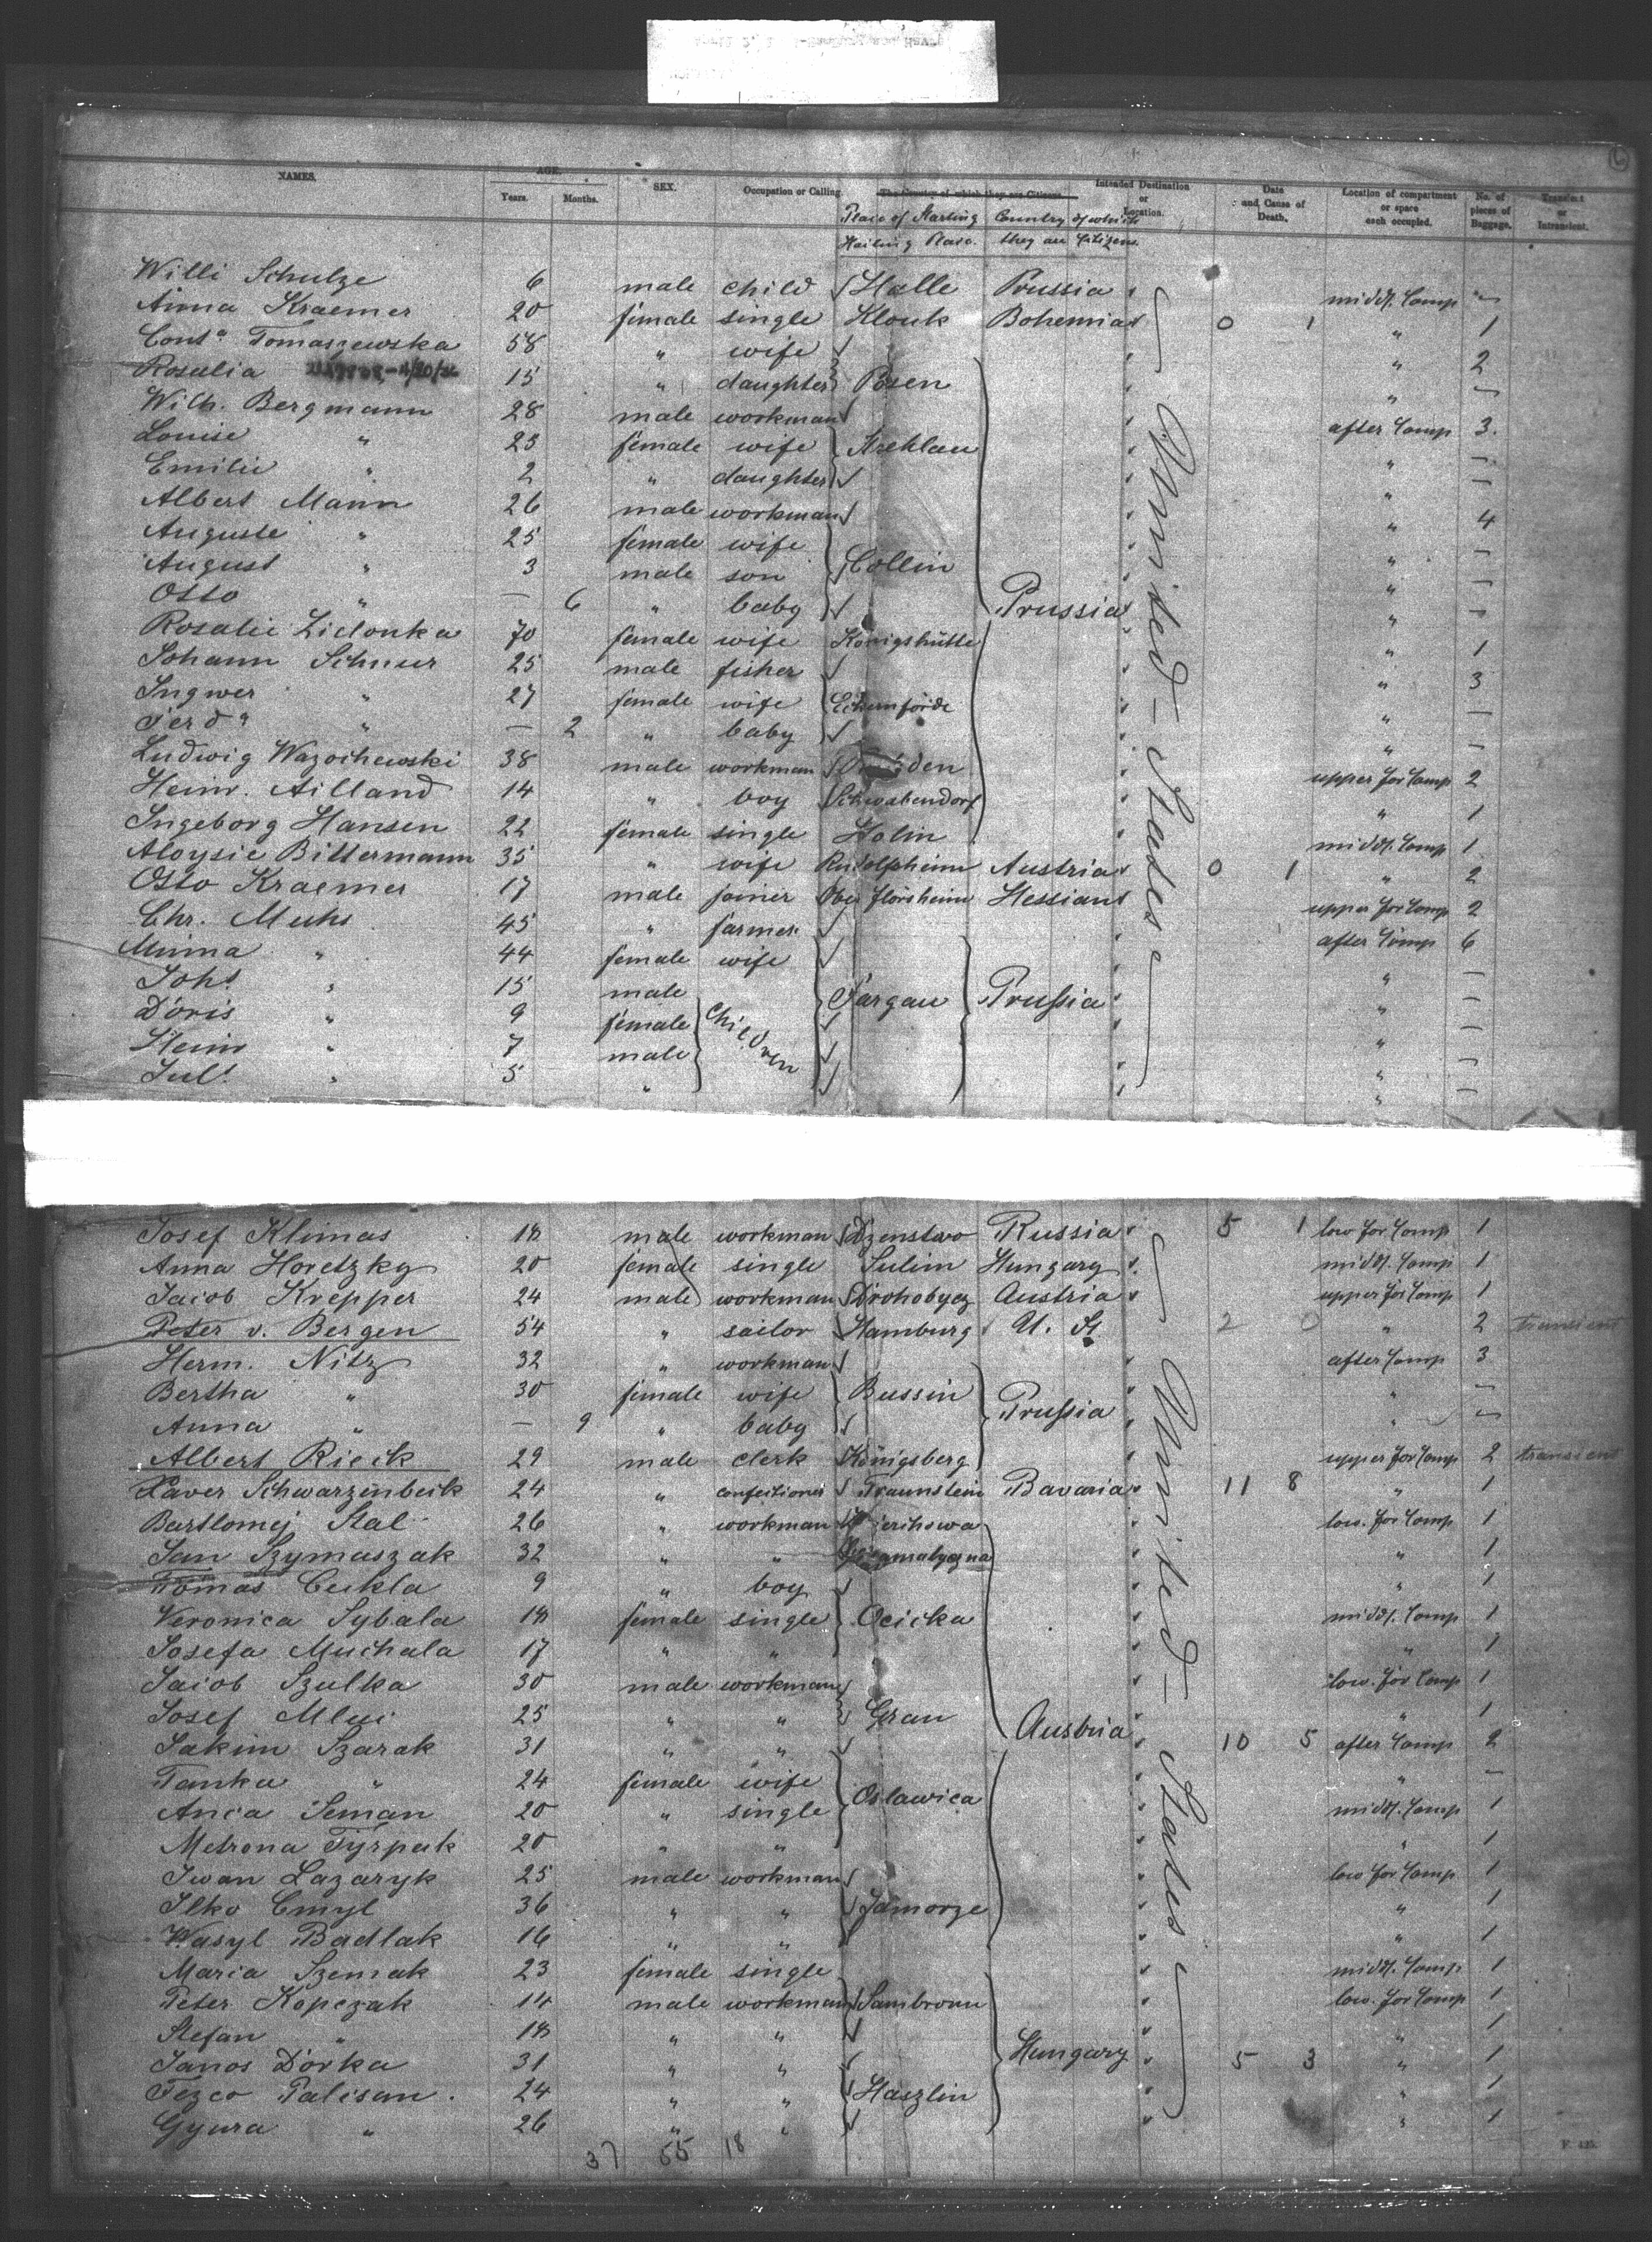 NAMES. AGE. Years. Months. SEX. Occupation or Calling. The Country of which they are Citizens. Intended Destination or Location. Date and Cause of Death. Location of compartment or space each occupied. No. of pieces of Baggage. Transient or Intransient.
Place of Starting Country of which
Hailing Place. they are Citizens.
Willi Schulze 6 male child Halle Prussia midd. Comp —
Anna Kraemer 20 female single Klouk Bohemia 0 1 " 1
Const.ª Tomaszewska 58 " wife " 2
Rosalia 15 " daughter Posen " —
Wilh. Bergmann 28 male workman after Comp 3.
Louise " 25 female wife Strehlau " —
Emilie " 2 " daughter " —
Albert Mann 26 male workman " 4
Auguste " 25 female wife " —
August " 3 male son Collin " —
Otto " — 6 " baby Prussia " —
Rosalie Zielonka 70 female wife Königshütte " 1
Johann Schnser 25 male fisher " 3
Ingwer " 27 female wife Eckernförde " —
Ferd.ª " — 2 " baby " —
Ludwig Wazochewski 38 male workman upper for Comp 2
Heinr. Ailland 14 " boy Schwabendorf " 1
Ingeborg Hansen 22 female single Holm midd. Comp 1
Aloysie Bittermann 35 " wife Rudolfsheim Austria 0 1 " 2
Otto Kraemer 17 male joiner Ober Flörsheim Hessian upper for Comp 2
Chr. Muhs 45 " farmer after Comp 6
Minna " 44 female wife " —
Johs " 15 male Targau Prussia " —
Doris " 9 female children " —
Heinr " 7 male " —
Juls " 5 " " —
United States
Josef Klimas 18 male workman Dzenstwo Russia 5 1 low for Comp 1
Anna Horetzky 20 female single Sulim Hungary midd. Comp 1
Jacob Krepper 24 male workman Drohobycz Austria upper for Comp 1
Peter v. Bergen 54 " sailor Hamburg U. St 2 0 " 2 transient
Herm. Nitz 32 " workman after Comp 3
Bertha " 30 female wife Bussin Prussia " —
Anna " — 9 " baby " —
Albert Rieck 29 male clerk Königsberg upper for Comp 2 transient
Xaver Schwarzenbeck 24 " confectioner Traunstein Bavaria 11 8 " 1
Bartlomej Stal 26 " workman low. for Comp 1
Jan Szymaszak 32 " " " 1
Tomas Cukla 9 " boy " 1
Veronica Sybala 18 female single Ocicka midd. Comp 1
Josefa Muchala 17 " " " 1
Jacob Szulka 30 male workman low. for Comp 1
Josef Mlui 25 " " Gran Austria " 1
Jakim Szarak 31 " " 10 5 after Comp 2
Tanka " 24 female wife Oslawica " —
Anca Seman 20 " single midd. Comp 1
Metrona Tyrpak 20 " " " 1
Iwan Lazaryk 25 male workman low for Comp 1
Ilko Cmyl 36 " " Jamorze " 1
Wasyl Badlak 16 " " " 1
Maria Szemak 23 female single midd. Comp 1
Peter Kopczak 14 male workman Sambronn low. for Comp 1
Stefan " 18 " " " 1
Janos Dorka 31 " " Hungary 5 3 " 1
Fezco Palisan 24 " " Haszlin " 1
Gyura " 26 " " " 1
United States
37 55 18
F. 425.